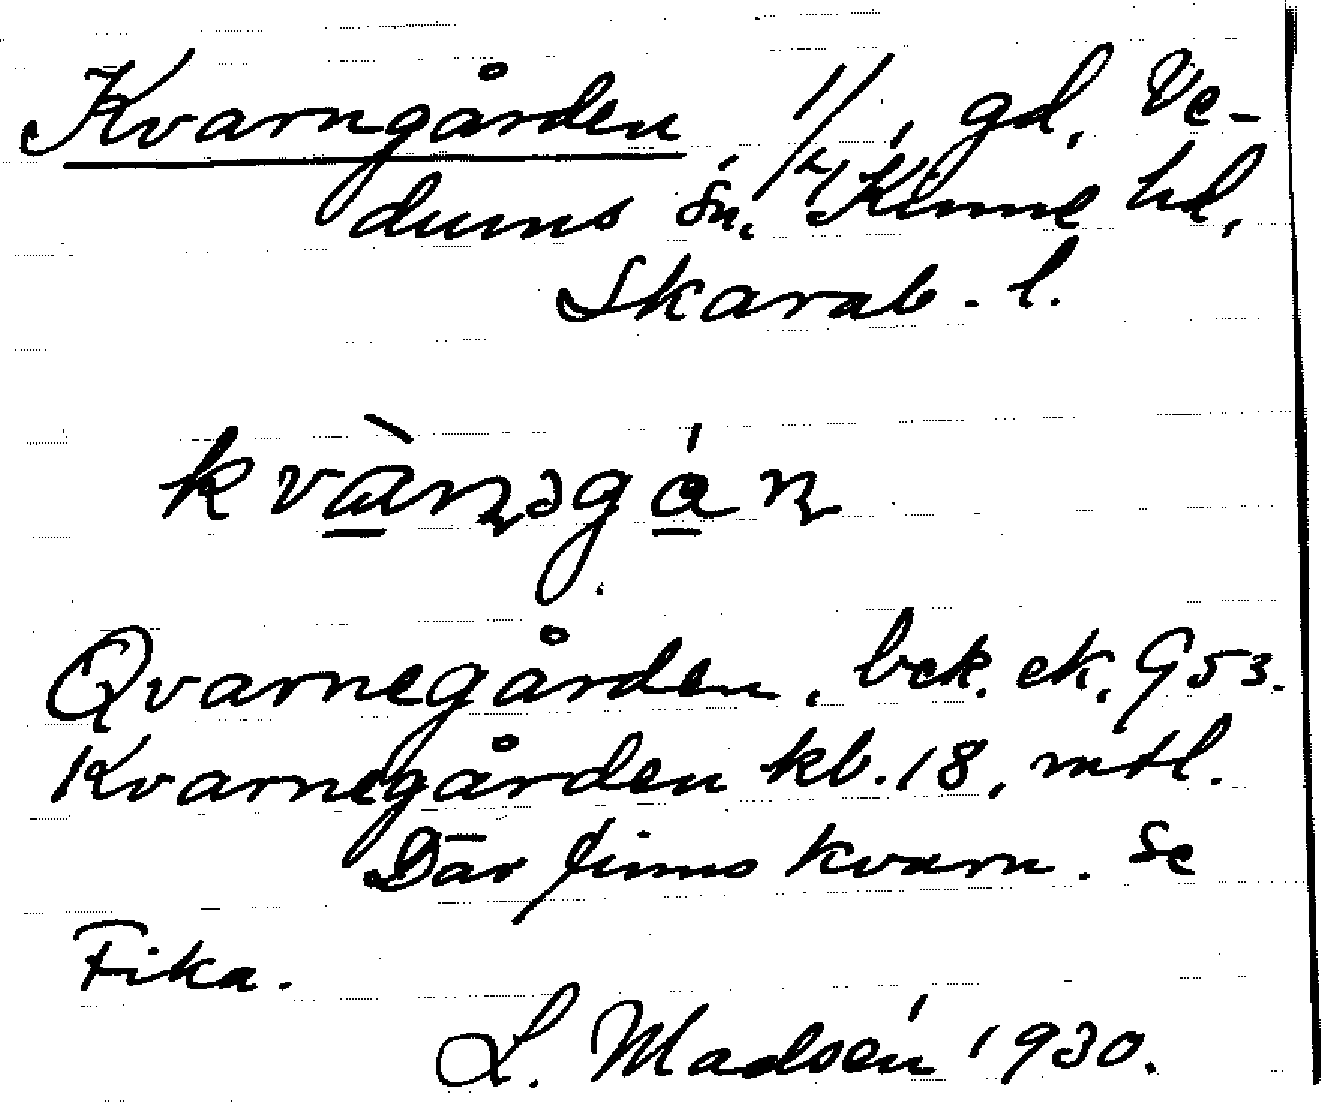 Kvarngården 1/4, gd, Ve-
dums sn, Kinne hd,
Skarab. l.
kvàɳəgáɳ
Qvarnegården, bek. ek. 953.
Kvarnegården kb. 18, mtl.
Där finns kvarn. Se
Fika.
L. Madsén 1930.